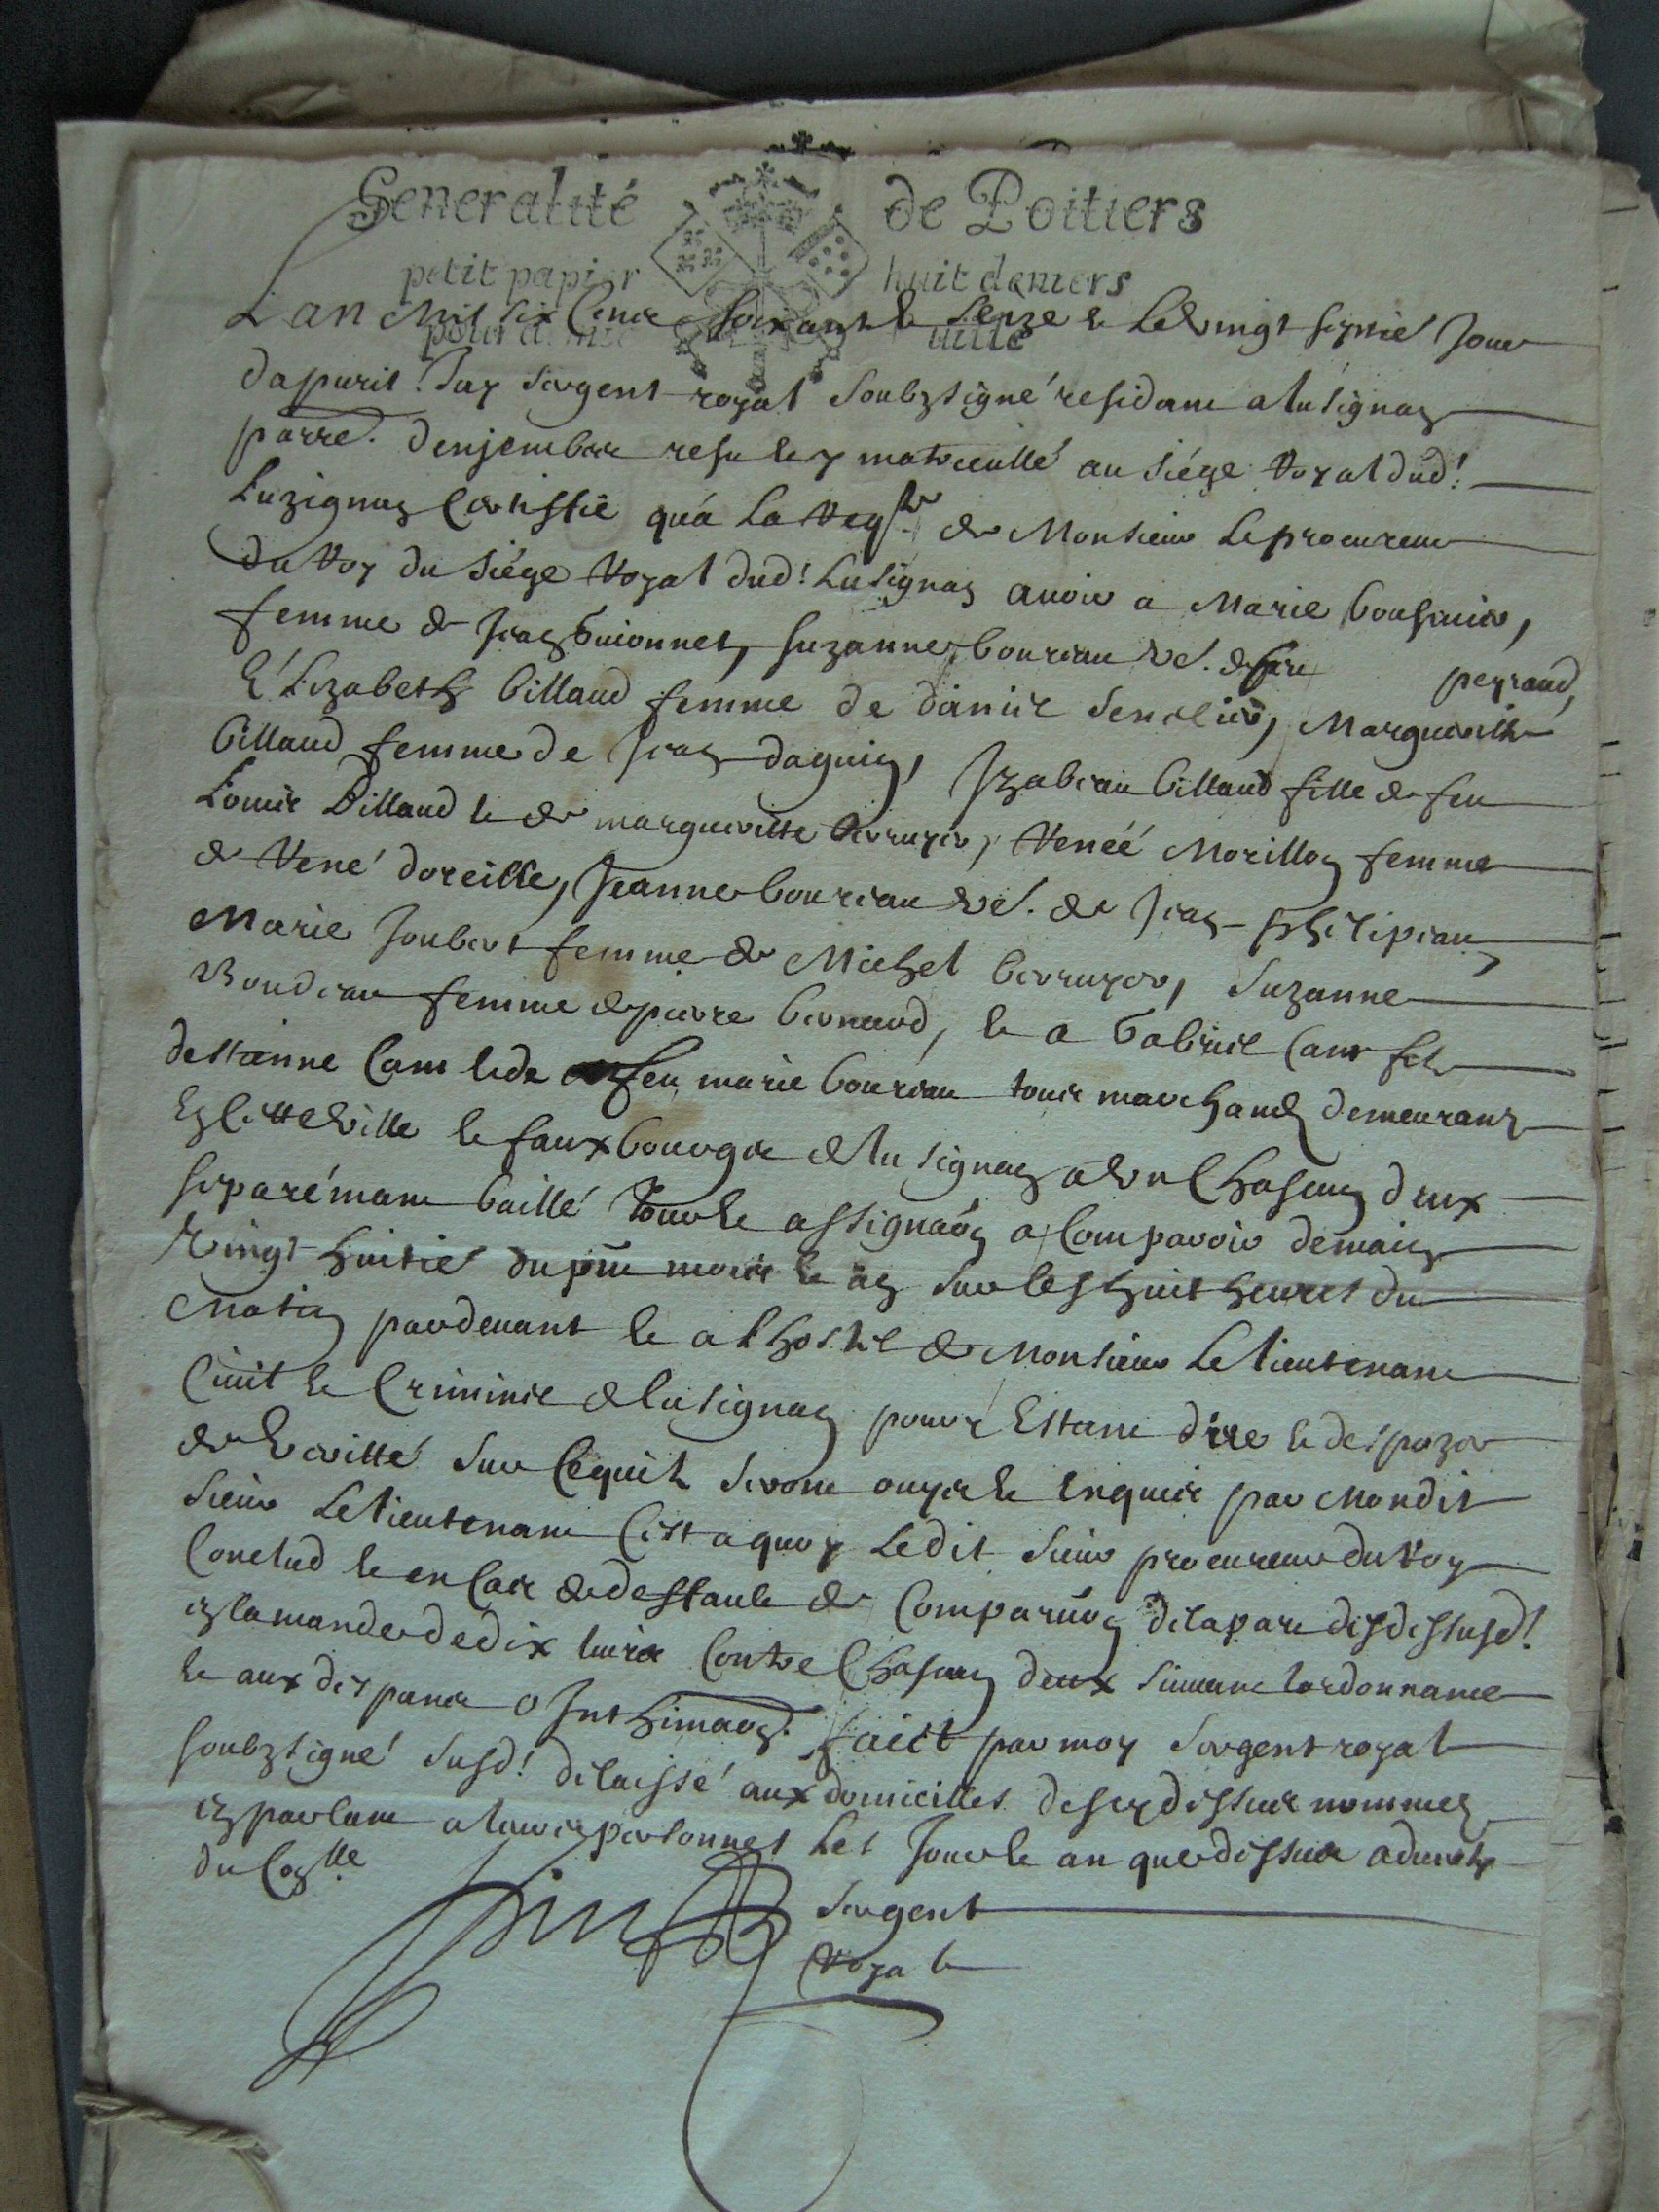 Generalité de Poitiers
petit papier huit deniers
L'an mil six cens soixante seize & le vingt septie jour
dapvril Jay sergent royal soubzsigné residant a lusignan
parre. denjembre resu & y matricullé au siége royal dud!
Luzignan Certiffie qu'á la reqte de Monsieur le procureur
du Roy du siége Royal dud! Lusignan avoir a Marie
femme de Jean Guionnet, suzanne bouriau ve. de feu peyraud,
& Elizabeth billaud femme de daniel Marguerithe
billaud femme de Jean daguin, Izabeau billaud fille de feu
Louis Billaud & de margueritte berruyer, Renéé Morillon femme
de René doreille, Jeanne bouriau ve. de Jean philipeau
Marie Joubert femme de Michel berruyer, Suzanne
femme de pierre bernard, & a Gabriel Cam fils
destienne Cam & de feu marie bouriau tous marchands demeurans
en cette ville & fauxbourgs de lusignan a un Chascun deux
séparémant baillé jour & assignaon a Comparoir demain
vingt huitie du pnt mois & an sur les huit heures du
Matin pardevant & a lhostel de Monsieur le lieutenant
Civil & Criminel de lusignan pour y Estant dire & despozer
de veritté sur Ce quilz seront ouys & enquis par Mondit
sieur Le lieutenant C'est a quoy Ledit sieur procureur du Roy
Conclud & en Cas de deffault de Comparuon de la part desdessusd!
en lamande de dix livres Contre Chascun deux suivant lordonnance
& aux despans o Inthimaon. faict par moy sergent royal
soubzsigné susd! delaissé aux domicilles desdess dessus nommez
en parlant a leurs personnes les jour & an que dessus
sergent
Royal